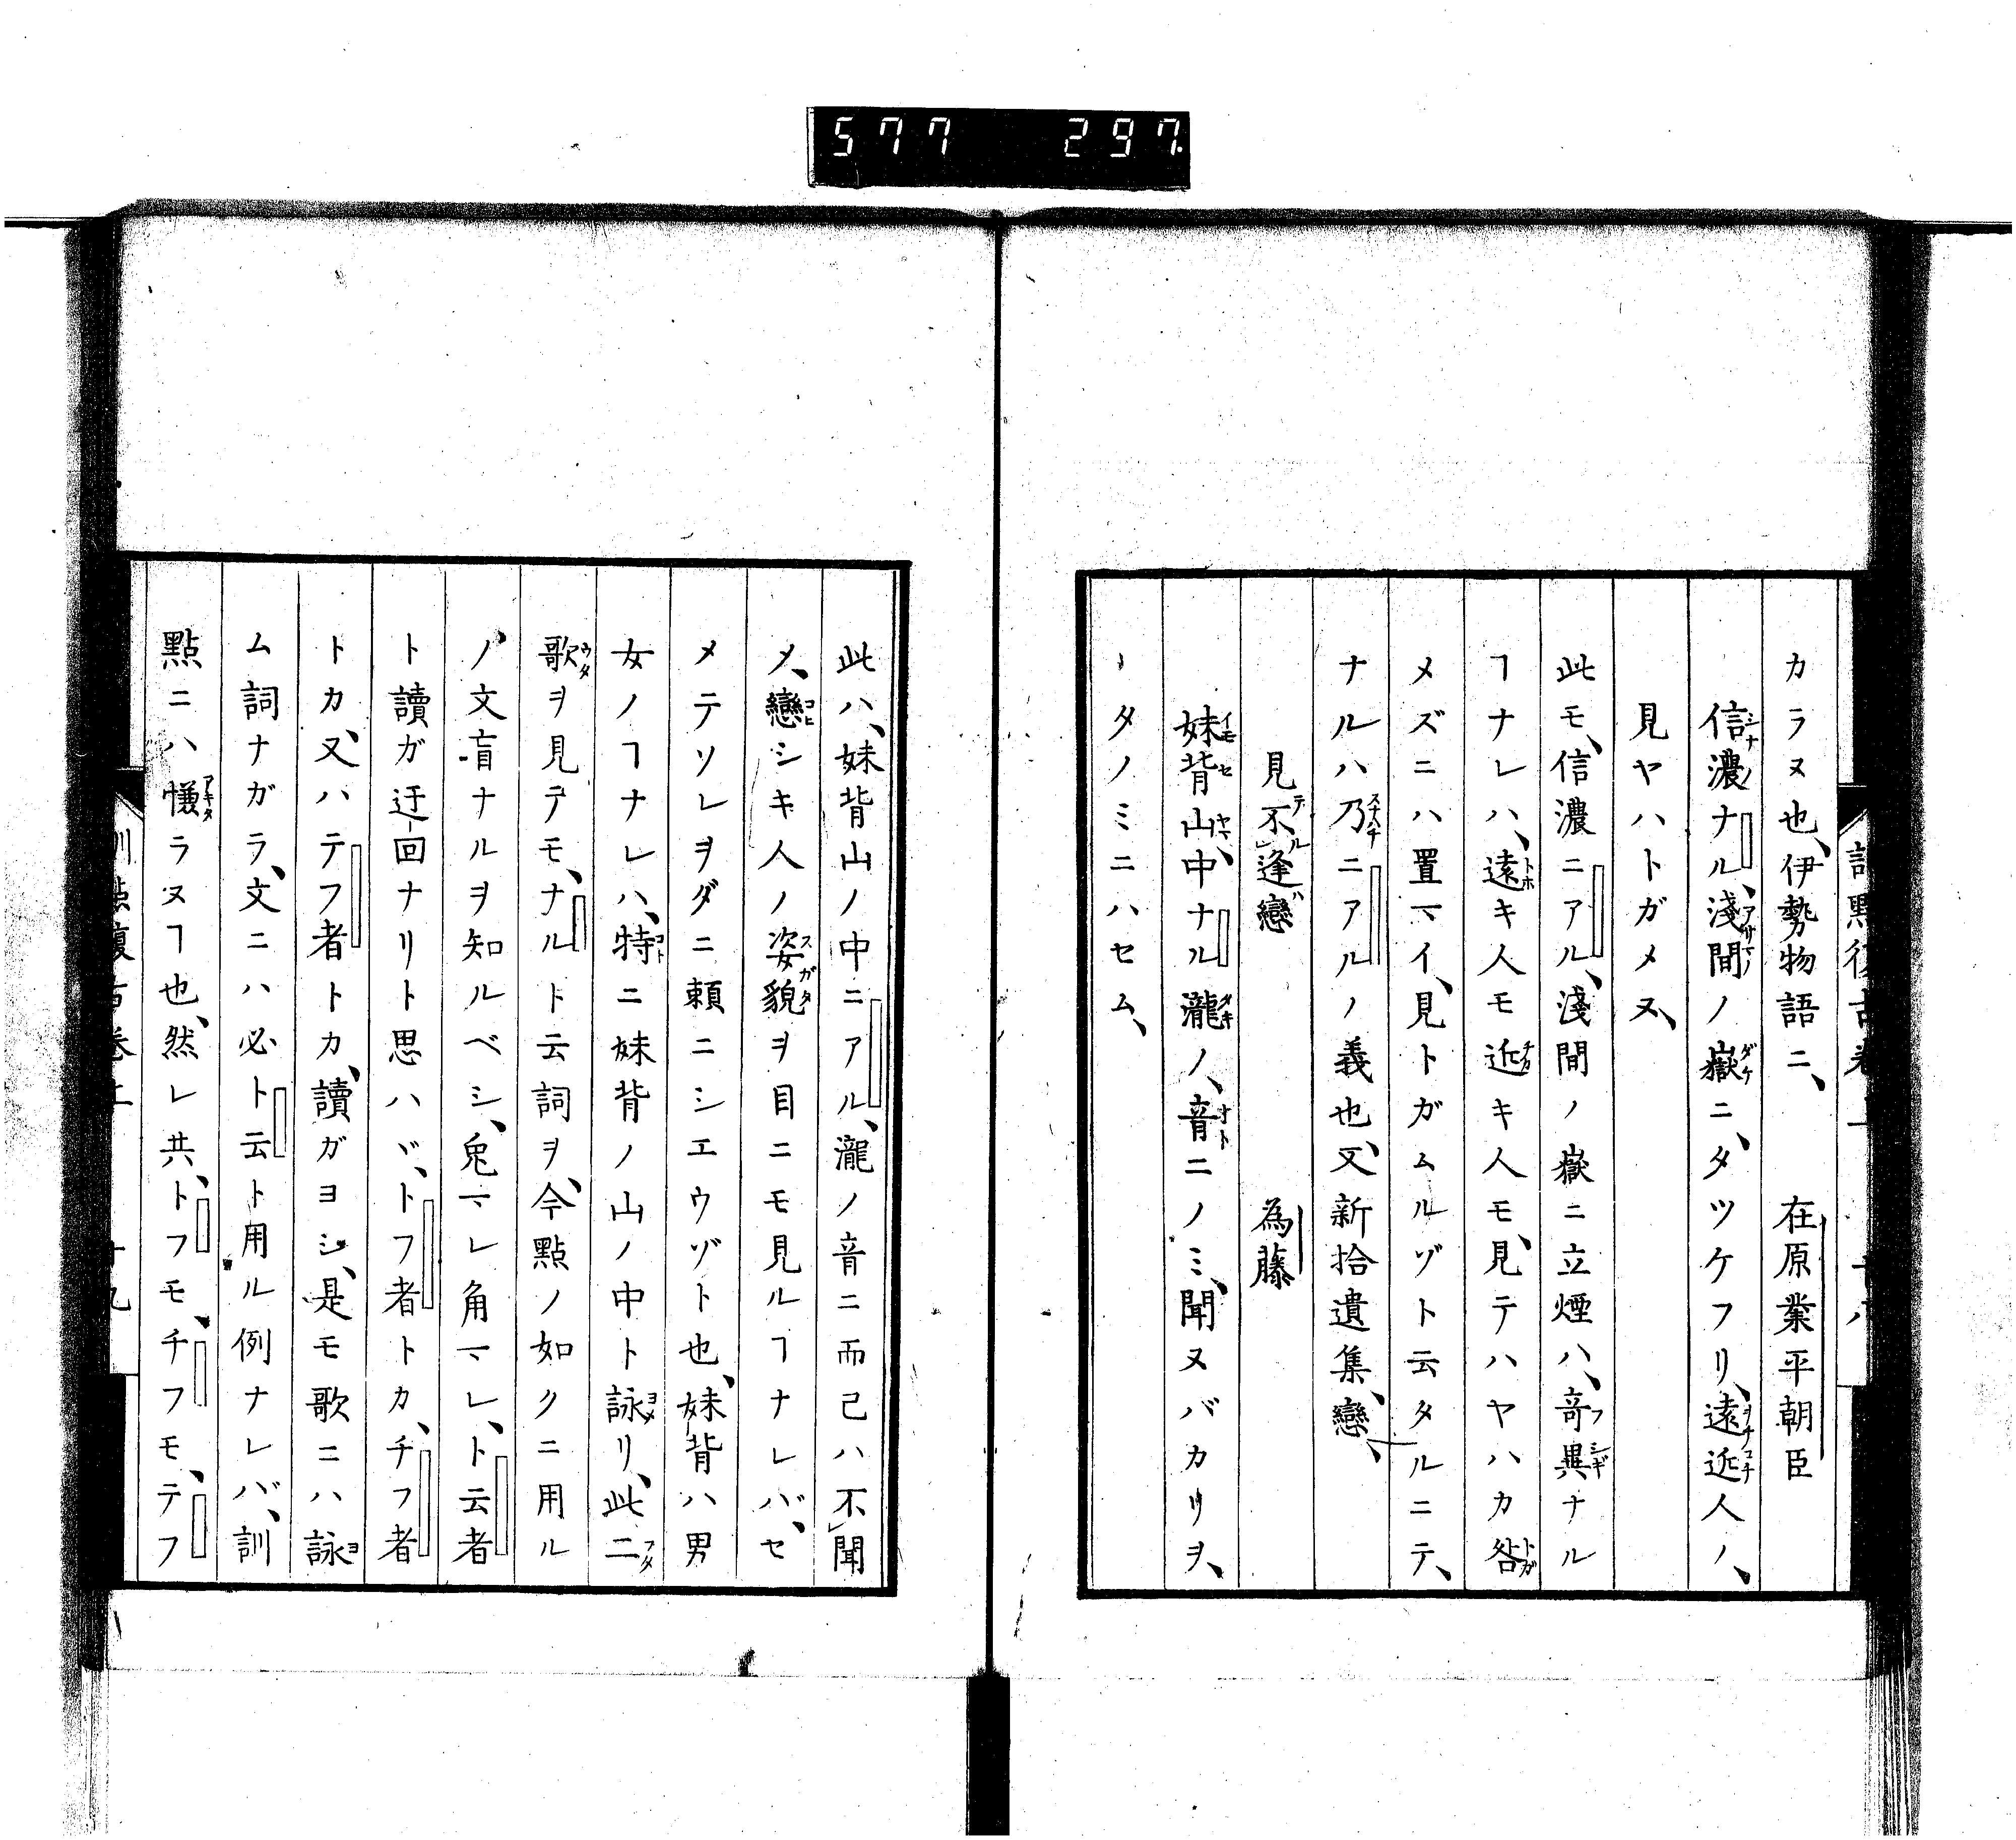 577 297.
カラヌ也、伊勢物語ニ、 在原業平朝臣
信濃ナル、淺間ノ嶽ニ、タツケフリ、遠近人ノ、
見ヤハトガメヌ、
此モ、信濃ニアル、淺間ノ嶽ニ立煙ハ、奇異ナル
ヿナレハ、遠キ人モ近キ人モ、見テハヤハカ咎
メズニハ置マイ、見トガムルゾト云タルニテ、
ナルハ乃ニアルノ義也、又、新拾遺集、戀、
見不逢戀 為藤
妹背山、中ナル瀧ノ、音ニノミ、聞ヌバカリヲ、
ヽタノミニハセム、
此ハ、妹背山ノ中ニアル、瀧ノ音ニ而己ハ不聞
メ、戀シキ人ノ姿貌ヲ目ニモ見ルヿナレバ、セ
メテソレヲダニ頼ニシエウゾト也、妹背ハ男
女ノヿナレハ、特ニ妹背ノ山ノ中ト詠リ、此二
歌ヲ見テモ、ナルト云詞ヲ、今點ノ如クニ用ル
ノ文盲ナルヲ知ルベシ、兎マレ角マレ、ト云者
ト讀ガ迂回ナリト思ハヾ、トフ者トカ、チフ者
トカ、又ハテフ者トカ、讀ガヨシ、是モ歌ニハ詠
ム詞ナガラ、文ニハ必ト云ト用ル例ナレバ、訓
點ニハ慊ラヌヿ也、然レ共、トフモ、チフモ、テフ